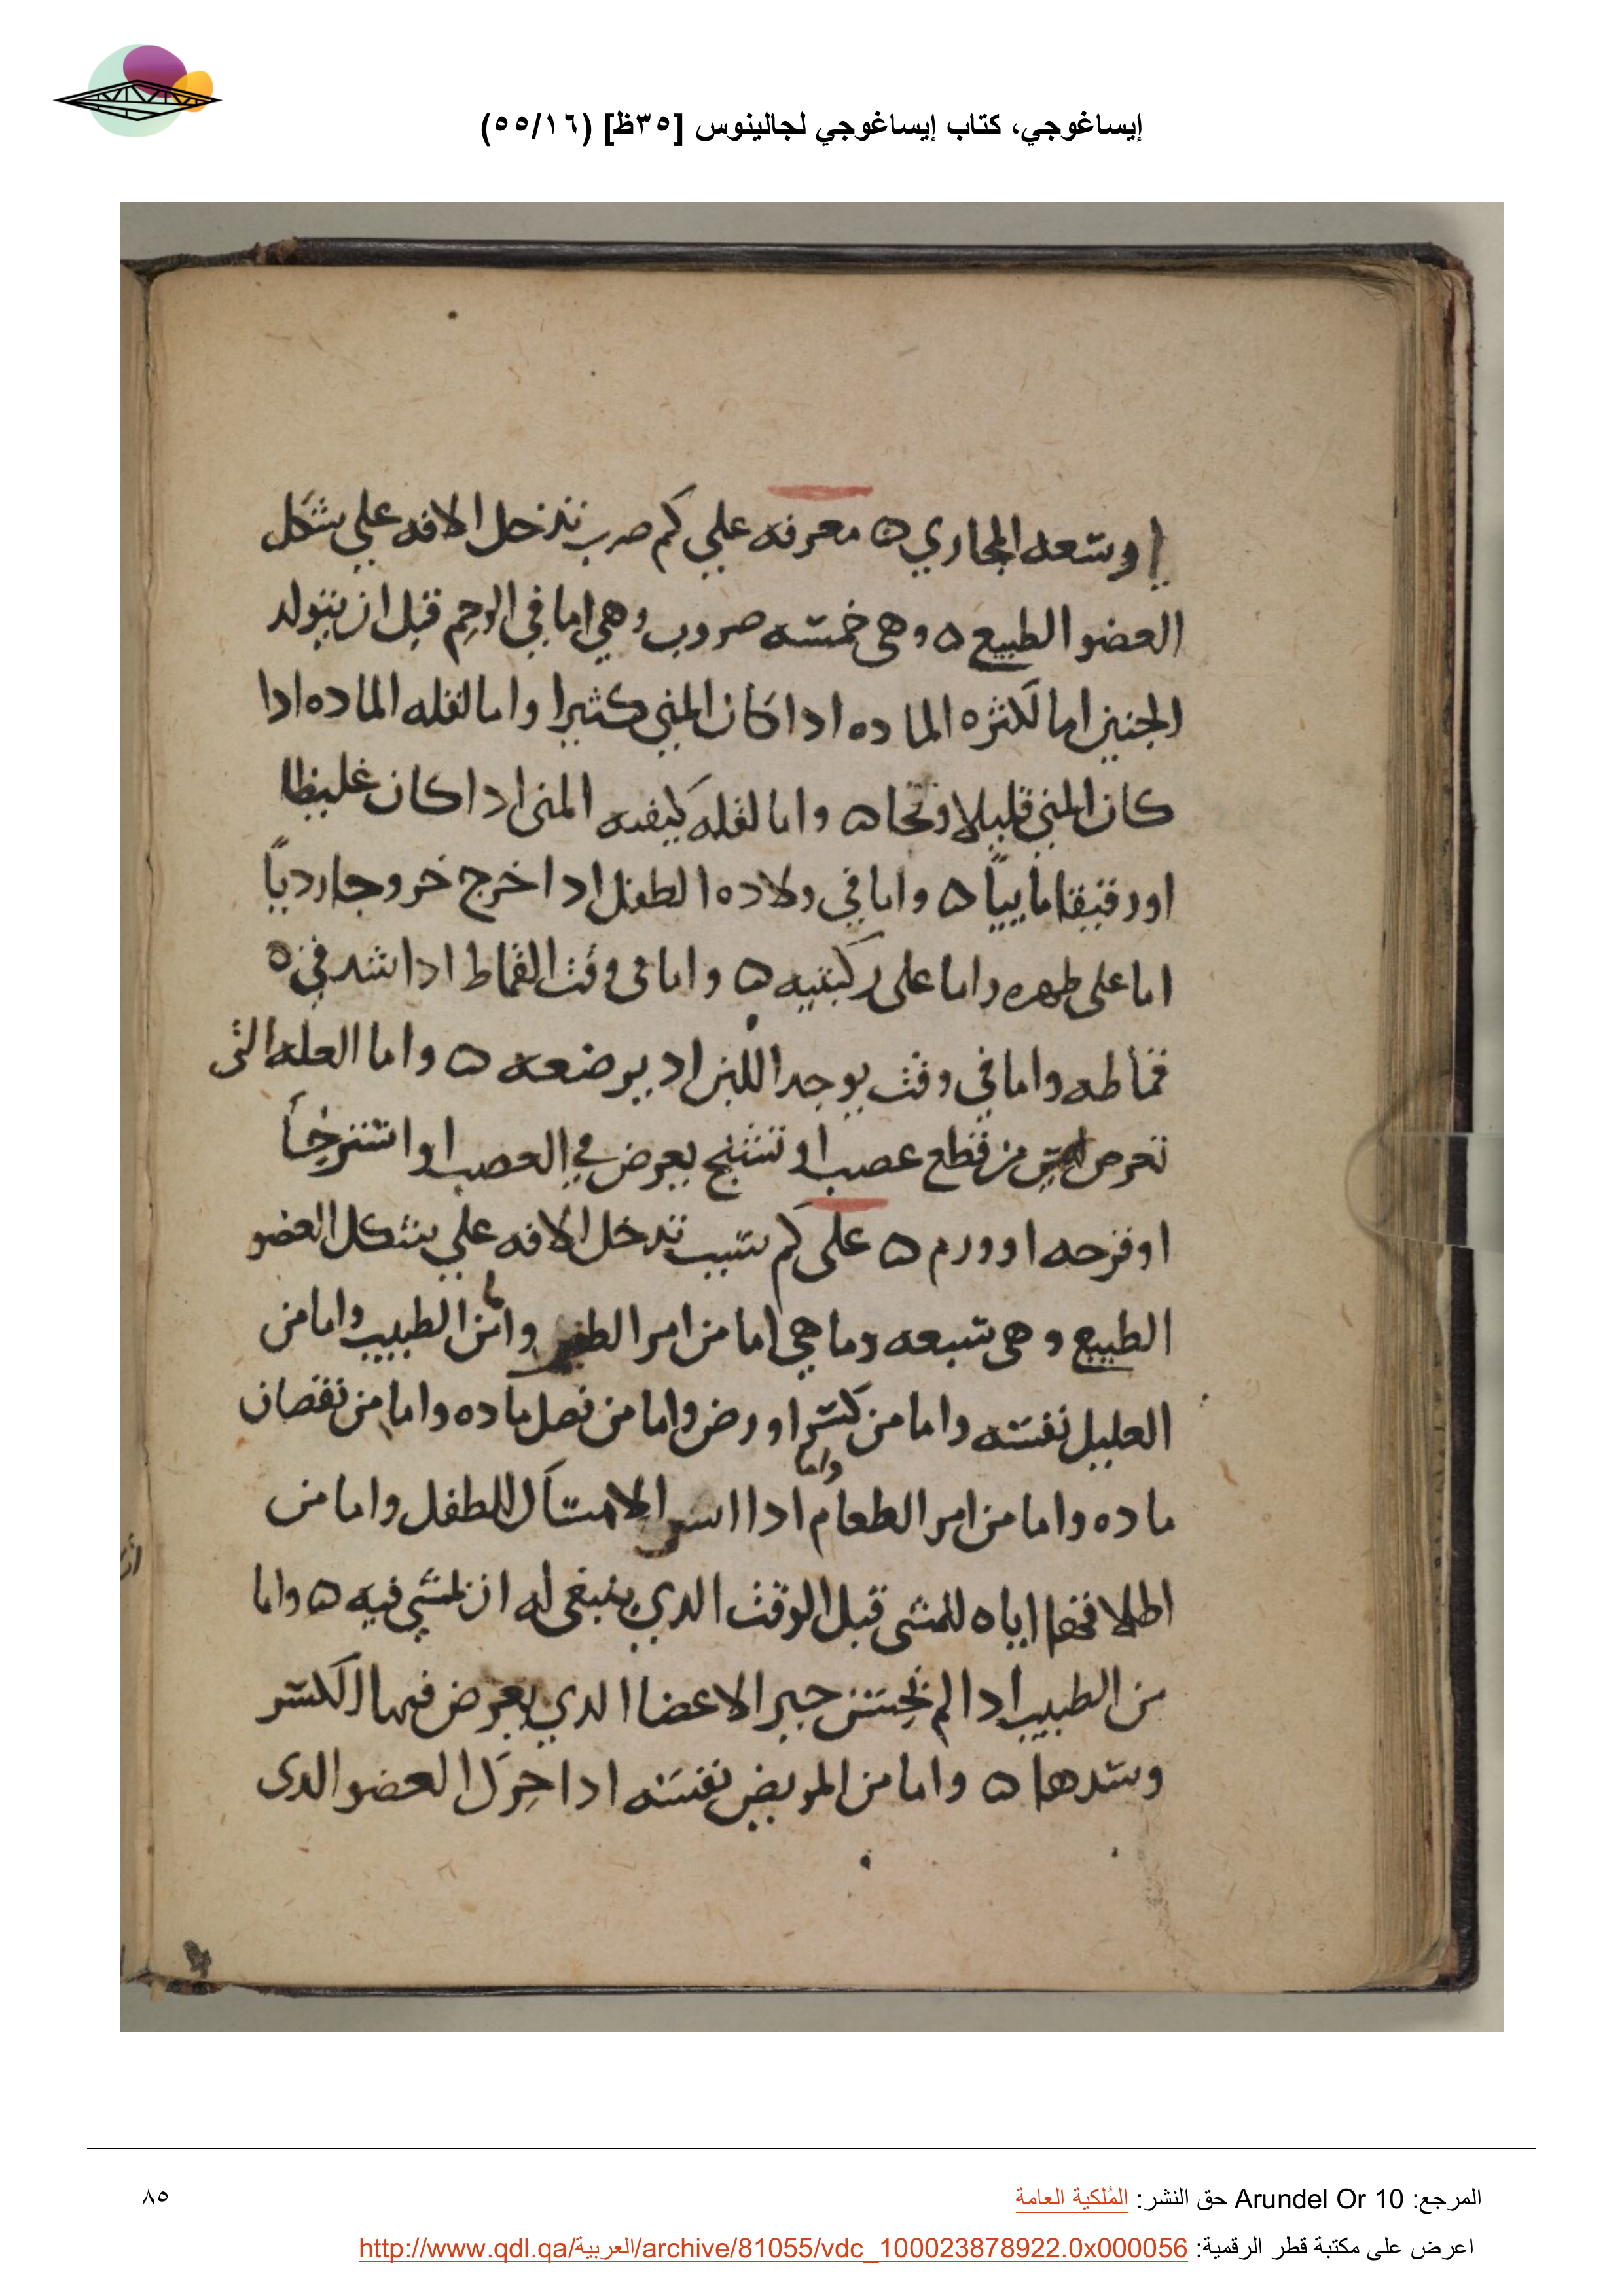 إيساغوجي، كتاب إيساغوجي لجالينوس [٣٥ظ] (٥٥/١٦)
اوسعه المجاري ه معرفه علي كم ضرب تدخل الافه علي شكل
العضو الطبيع ه وهى خمسه ضروب وهي اما في الرحم قبل ان يتولد
الجنين اما لكثره الماده ادا كان المني كثيرا واما لقله الماده ادا
كان المني قليلا ه واما لقله كيفيه المنى ادا كان غليظا
او رقيقا ماييا ه واما في ولاده الطفل ادا خرج خروجا رديا
اما على ظهره واما على ركبتيه ه واما فى وقت القماط ادا شد في
قماطه واما في وقت يوجد اللبن اد يرضعه ه واما العله التى
تعرض من قطع عصب او تشنج يعرض في العصب او استرخا
او قرحه او ورم ه على كم سبب تدخل الافه علي شكل العضو
الطبيع وهى سبعه وما هي اما من امر الطفل واما من الطبيب واما من
العليل نفسه واما من كسر او رض واما من فصل ماده واما من نقصان
ماده واما من امر الطعام ادا واما الامساك للطفل واما من
اطلاقها اياه للمشى قبل الوقت الدي ينبغى له ان يمشي فيه ه واما
من الطبيب ادا لم يحسن جبر الاعضا الدي يعرض فيها الكسر
وشدها ه واما من المريض نفسه ادا حرك العضو الدى
المرجع: Arundel Or 10 حق النشر: المُلكية العامة
٨٥
اعرض على مكتبة قطر الرقمية: http://www.qdl.qa/العربية/archive/81055/vdc_100023878922.0x000056